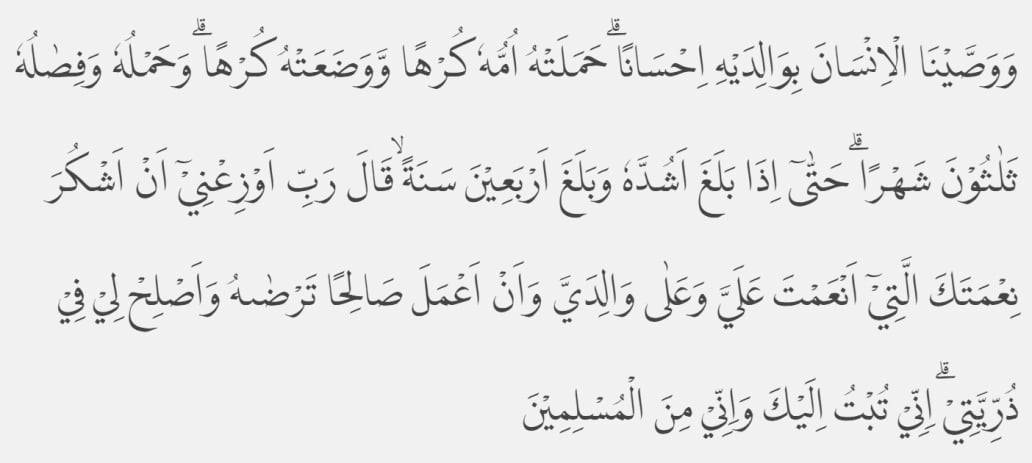 وَوَصَّيْنَا الْاِنْسَانَ بِوَالِدَيْهِ اِحْسَانًا ۗحَمَلَتْهُ اُمُّهٗ كُرْهًا وَّوَضَعَتْهُ كُرْهًا ۗوَحَمْلُهٗ وَفِصٰلُهٗ
ثَلٰثُوْنَ شَهْرًا ۗحَتّٰىٓ اِذَا بَلَغَ اَشُدَّهٗ وَبَلَغَ اَرْبَعِيْنَ سَنَةًۙ قَالَ رَبِّ اَوْزِعْنِيْٓ اَنْ اَشْكُرَ
نِعْمَتَكَ الَّتِيْٓ اَنْعَمْتَ عَلَيَّ وَعَلٰى وَالِدَيَّ وَاَنْ اَعْمَلَ صَالِحًا تَرْضٰىهُ وَاَصْلِحْ لِيْ فِيْ
ذُرِّيَّتِيْۗ اِنِّيْ تُبْتُ اِلَيْكَ وَاِنِّيْ مِنَ الْمُسْلِمِيْنَ